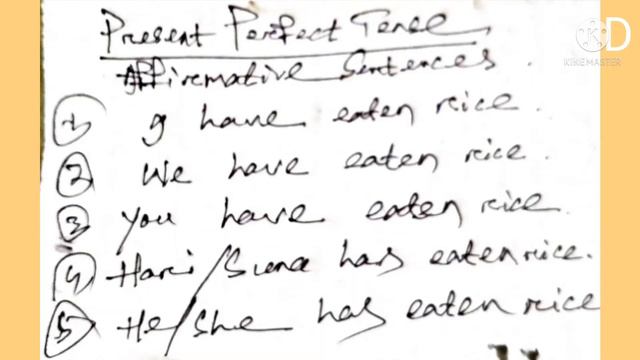 Present Perfect Tense
Affirmative Sentences.
1 I have eaten rice.
2 We have eaten rice.
3 You have eaten rice.
4 Hari/Suna has eaten rice.
5 He/she has eaten rice
KD
KINEMASTER